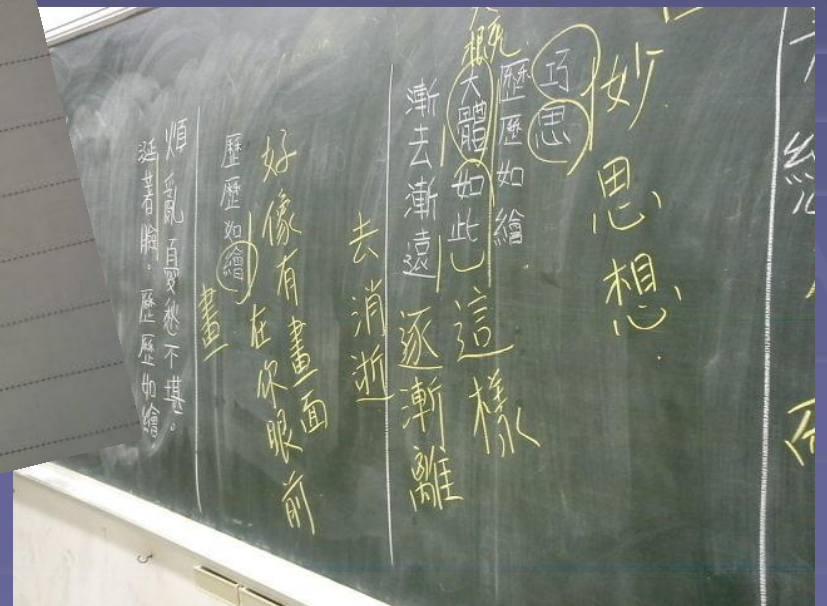 妙思想
巧思
歷歷如繪
大概
大體如此 這樣
漸去漸遠 逐漸離
去消逝
好像有畫面
在你眼前
歷歷如繪
畫
煩亂憂愁不堪。
歷歷如繪